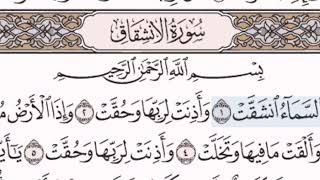 سُورَةُ الِانشِقَاقِ
بِسْمِ اللَّهِ الرَّحْمَٰنِ الرَّحِيمِ
السَّمَاءُ انشَقَّتْ ١ وَأَذِنَتْ لِرَبِّهَا وَحُقَّتْ ٢ وَإِذَا الْأَرْضُ
وَأَلْقَتْ مَا فِيهَا وَتَخَلَّتْ ٤ وَأَذِنَتْ لِرَبِّهَا وَحُقَّتْ ٥ يَا أَيُّ